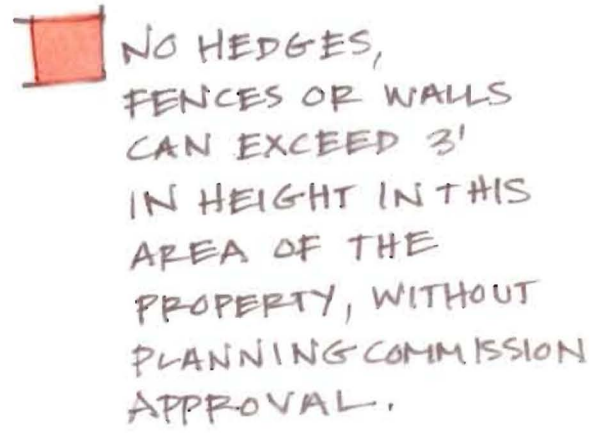 NO HEDGES,
FENCES OR WALLS
CAN EXCEED 3'
IN HEIGHT IN THIS
AREA OF THE
PROPERTY, WITHOUT
PLANNING COMMISSION
APPROVAL.